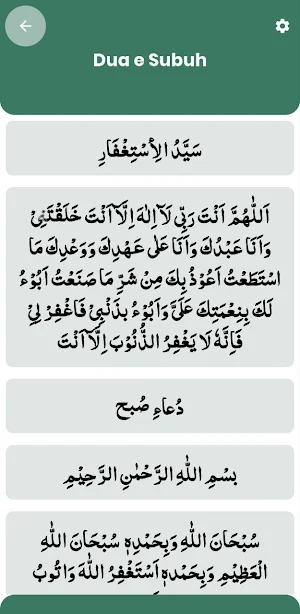 Dua e Subuh
سَيَّدُ الِأسْتِغْفَارِ
اَللّٰهُمَّ اَنْتَ رَبِّىْ لَآ اِلٰهَ اِلَّآ اَنْتَ خَلَقْتَنِىْ
وَاَنَا عَبْدُكَ وَاَنَا عَلٰى عَهْدِكَ وَوَعْدِكَ مَا
اسْتَطَعْتُ اَعُوْذُ بِكَ مِنْ شَرِّ مَا صَنَعْتُ اَبُوْءُ
لَكَ بِنِعْمَتِكَ عَلَىَّ وَاَبُوْءُ بِذَنْۢبِىْ فَاغْفِرْ لِىْ
فَاِنَّهٗ لَا يَغْفِرُ الذُّنُوْبَ اِلَّآ اَنْتَ
دُعاءِ صُبح
بِسْمِ اللّٰهِ الرَّحْمٰنِ الرَّحِيْمِ
سُبْحَانَ اللّٰهِ وَبِحَمْدِهٖ سُبْحَانَ اللّٰهِ
الْعَظِيْمِ وَبِحَمْدِهٖ اَسْتَغْفِرُ اللّٰهَ وَاَتُوْبُ